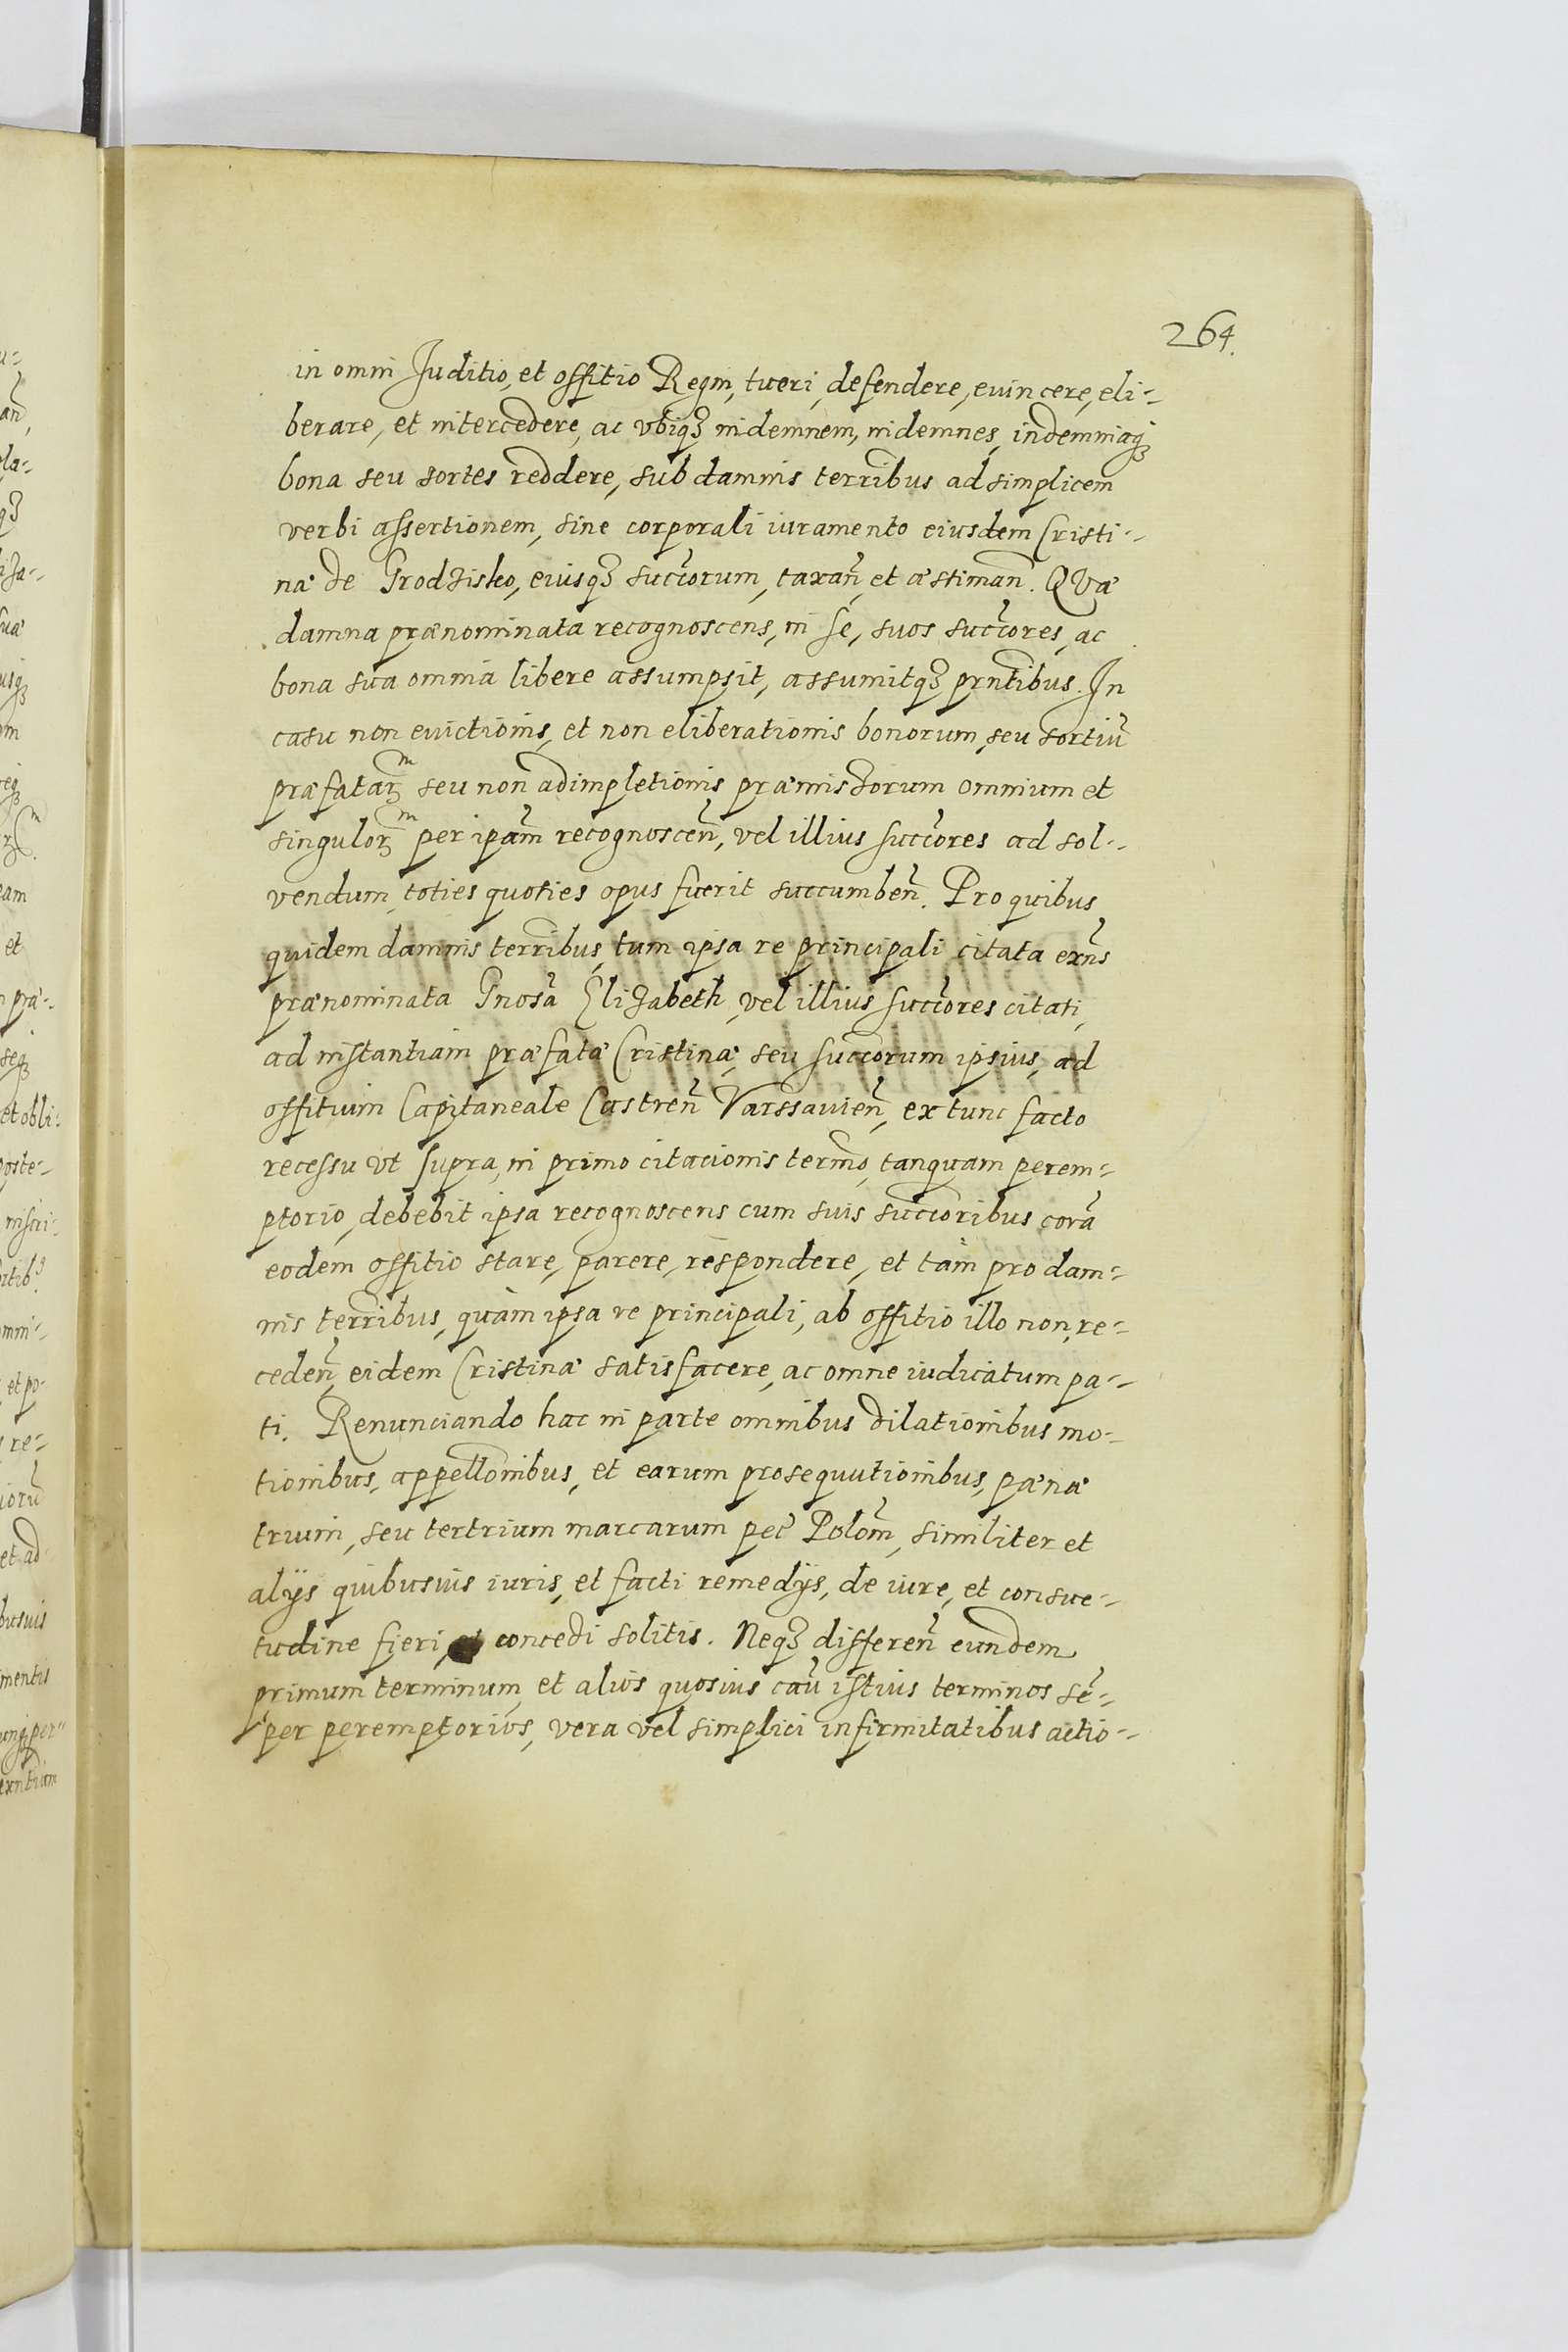 264.
in omni Juditio, et offitio Regni, tueri, defendere, euincere, eli-
berare, et intercedere, ac vbiqꝫ indemnem, indemnes, indemniaqꝫ
bona seu sortes reddere, sub damnis terribus ad simplicem
verbi assertionem, sine corporali iuramento eiusdem Cristi-
næ de Grodzisko, eiusqꝫ succorum, taxañ, et æstimañ. QVæ
damna prænominata recognoscens, in se, suos succores, ac
bona sua omnia libere assumpsit, assumitqꝫ prntibus. In
casu non euictionis, et non eliberationis bonorum, seu sortiũ
præfatarꝫm seu non adimpletionis præmissorum omnium et
singulorꝫm per ipam recognosceñ, vel illius succores ad sol-
vendum, toties quoties opus fuerit succumbeñ. Pro quibus
quidem damnis terribus, tum ipsa re principali citata exns
prænominata Gnosa Elizabeth, vel illius succores citati,
ad instantiam præfatæ Cristinæ, seu succorum ipsius, ad
offitium Capitaneale Castreñ Varssauieñ, ex tunc facto
recessu vt supra, in primo citacionis termo, tanquam perem-
ptorio, debebit ipsa recognoscens cum suis succoribus corã
eodem offitio stare, parere, respondere, et tàm pro dam-
nis terribus, quàm ipsa re principali, ab offitio illo non re-
cedeñ, eidem Cristinæ satisfacere, ac omne iudicatum pa-
ti. Renunciando hac in parte omnibus dilationibus mo-
tionibus, appellonibus, et earum prosequutionibus, pænæ
trium, seu tertrium marcarum pec Polom, similiter et
alijs quibusuis iuris, et facti remedijs, de iure, et consue-
tudine fieri, et concedi solitis. Neqꝫ differeñ eundem
primum terminum, et alios quosuis caũ istius terminos sẽ-
per peremptorios, vera vel simplici infirmitatibus actio-